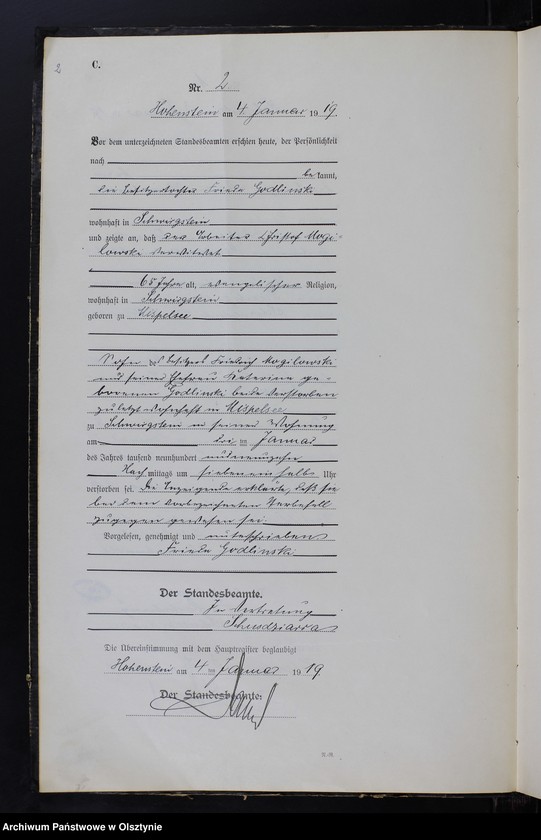 2
C.
Nr. 2.
Hohenstein am 4 Januar 1919.
Vor dem unterzeichneten Standesbeamten erschien heute, der Persönlichkeit
nach
bekannt,
die Besitzertochter Frieda Godlinski
wohnhaft in Schwirgstein
und zeigte an, daß der Arbeiter Christof Mogi-
lowski verwitwet
65 Jahre alt, evangelischer Religion,
wohnhaft in Schwirgstein
geboren zu Mispelsee
Sohn des Besitzers Friedrich Mogilowski
und seiner Ehefrau Katerine ge-
borenen Godlinski beide verstorben
zuletzt wohnhaft in Mispelsee
zu Schwirgstein in seiner Wohnung
am drei ten Januar
des Jahres tausend neunhundert und neunzehn
Nachmittags um sieben ein halb Uhr
verstorben sei. Die Anzeigende erklärte, daß sie
bei dem vorbezeichneten Sterbefall
zugegen gewesen sei.
Vorgelesen, genehmigt und unterschrieben
Frieda Godlinski
Der Standesbeamte.
In Vertretung
Schudziarra
Die Übereinstimmung mit dem Hauptregister beglaubigt
Hohenstein am 4 ten Januar 1919.
Der Standesbeamte:
Archiwum Państwowe w Olsztynie